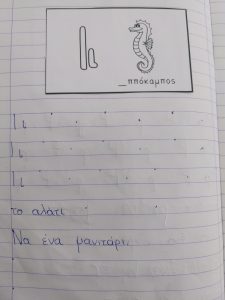 Ιι
_ππόκαμπος
Ιι
Ιι
Ιι
το αλάτι
Να ένα μανιτάρι